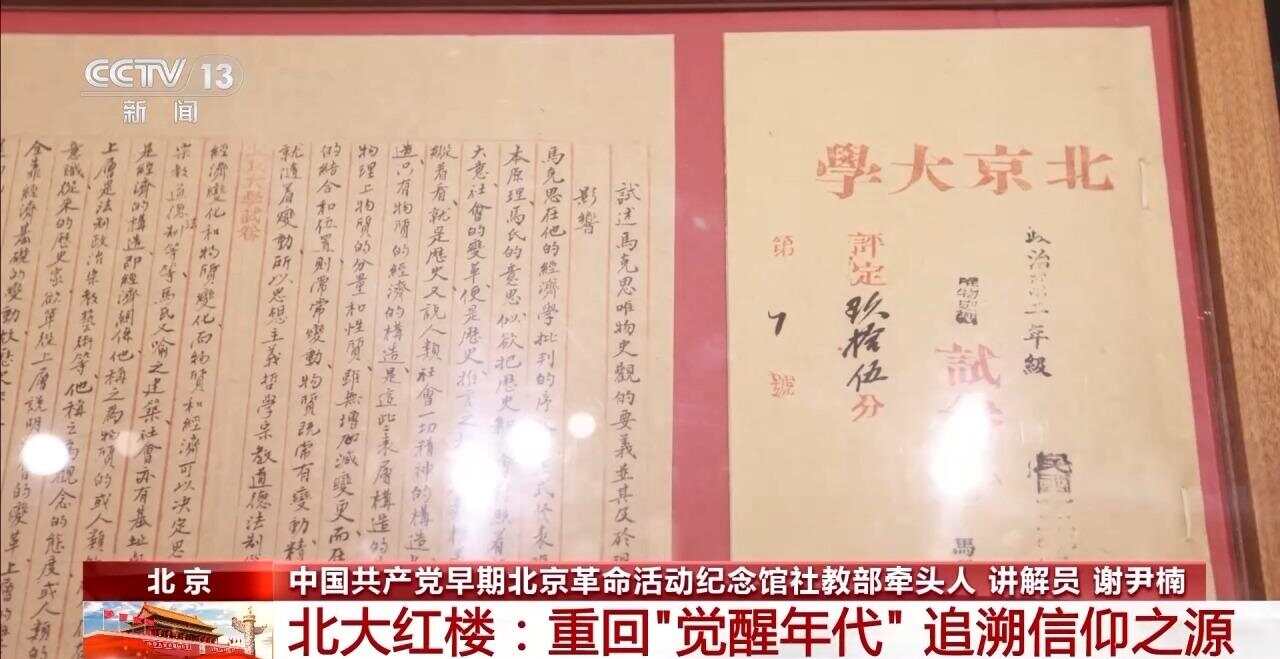 CCTV 13
新闻
北京大學
政治部第二年級
唯物史觀
試
民國
馬
評定玖拾伍分
第7號
試述馬克思唯物史觀的要義並其及於現
影響
馬克思在他的經濟學批判的序
本原理馬氏的意思似欲把歷史
大意社會的變革便是歷史推言之
縱着看就是歷史又說人類社會一切精神的構造
造只有物質的經濟的構造是這此表層構造的
物理上物質的分量和性質雖無增加減變更而在
的結合和位置則常常變動物質既常有變動精
就隨着變動所以思想主義哲學宗教道德法制
學試卷
經濟變化和物質變化而物質和經濟可以決定思
宗教道德法制等等馬氏又喻之建築社會亦有基址
是經濟的構造即經濟關係他稱之為物質的或人類
上層是法制政治宗教藝術等他稱之為觀念的態度或人類
意識從來的歷史家欲單從上層說明社會的變革
全靠經濟基礎的變動故歷史
北京
中国共产党早期北京革命活动纪念馆社教部牵头人 讲解员 谢尹楠
北大红楼：重回"觉醒年代" 追溯信仰之源